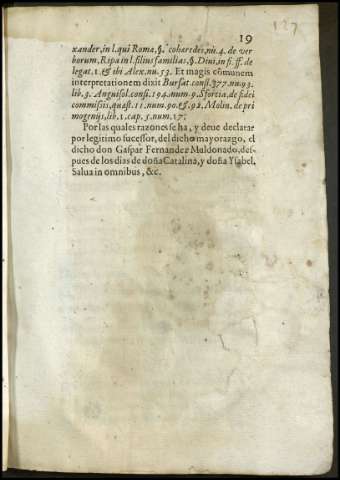 19
127
xander, in l. qui Roma, §. cohæredes, nu. 4. de ver
borum, Ripa in l. filius familias, §. Diui, in fi. ff. de
legat. 1. & ibi Alex. nu. 53. Et magis cōmunem
interpretationem dixit Bursat. cons. 377. nu. 93.
lib. 3. Anguisol. consi. 194. num. 9. Sfortia, de fidei
commissis, quæst. 11. num. 90. & 92. Molin. de pri
mogenijs, lib. 1. cap. 5. num. 17.
Por las quales razones se ha, y deue declarar
por legitimo sucessor, del dicho mayorazgo, el
dicho don Gaspar Fernandez Maldonado, des-
pues de los dias de doña Catalina, y doña Ysabel,
Salua in omnibus, &c.